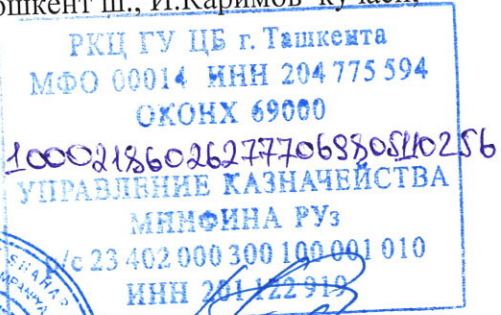 ошкент ш., И.Каримов кучаси,
РКЦ ГУ ЦБ г. Ташкента
МФО 00014 ИНН 204 775 594
ОКОНХ 69000
100021860262777069805110256
УПРАВЛЕНИЕ КАЗНАЧЕЙСТВА
МИНФИНА РУз
р/с 23 402 000 300 100 001 010
ИНН 201 122 919